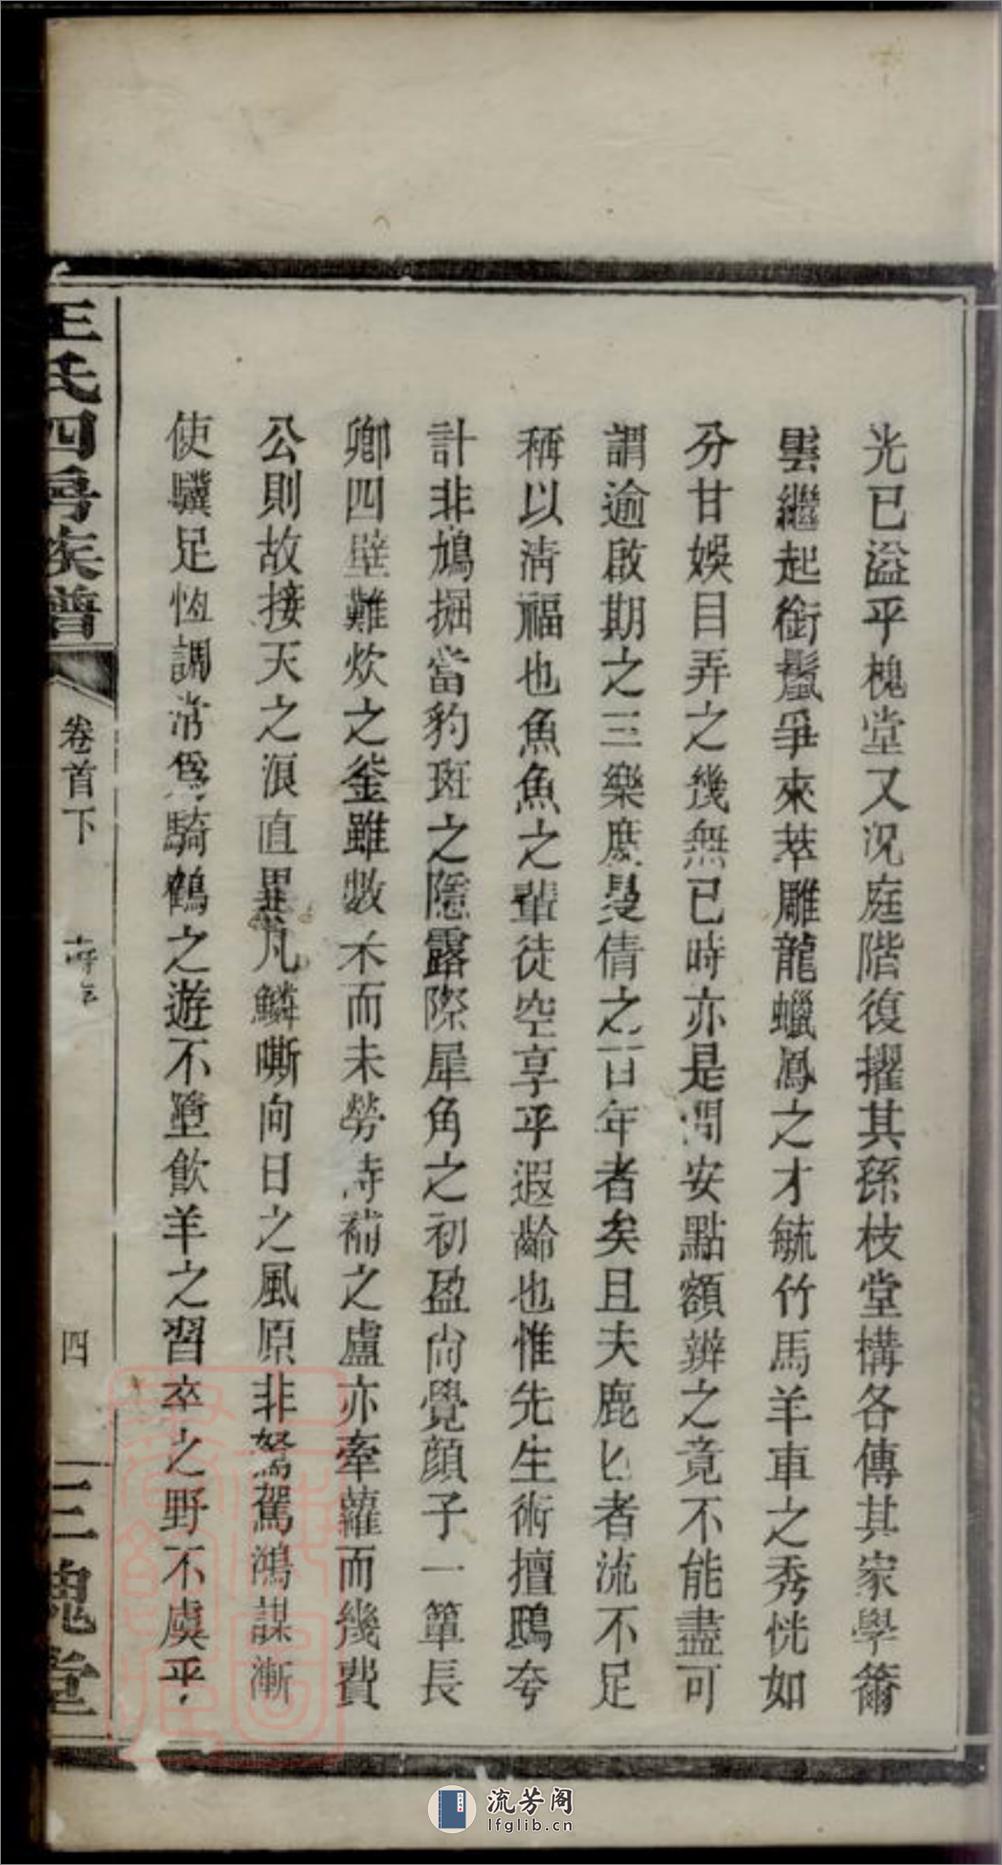 光已溢乎槐堂又况庭階復擢其孫枝堂構各傳其家學爾
雲繼起銜鬛爭來萃雕龍蠟鳳之才毓竹馬羊車之秀恍如
分甘娛目弄之幾無已時亦是問安點額辨之竟不能盡可
謂逾啟期之三樂庶曼倩之百年者矣且夫鹿匕者流不足
稱以清福也魚魚之輩徒空享乎遐齡也惟先生術擅鴟夸
計非鳩掘當豹斑之隱露際犀角之初盈尙覺顔子一簞長
卿四壁難炊之釜雖數米而未勞待補之廬亦牽蘿而幾費
公則故接天之浪直異凡鱗嘶向日之風原非駑駕鴻謀漸
使驥足恆調常爲騎鶴之遊不墮飲羊之習卒之野不虞乎
王氏四房族譜
卷首下
四
三槐堂
流芳阁
lfglib.cn